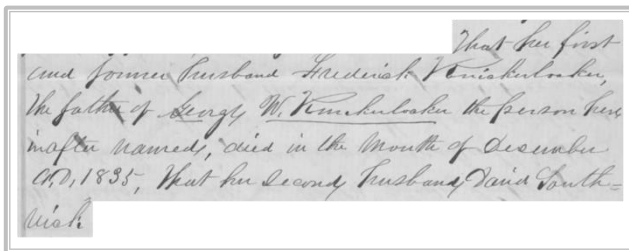 That her first
and former Husband Frederick Knickerbocker,
the father of George W. Knickerbocker the person here
inafter named, died in the Month of December
A.D, 1835, That her Second Husband David South=
wick